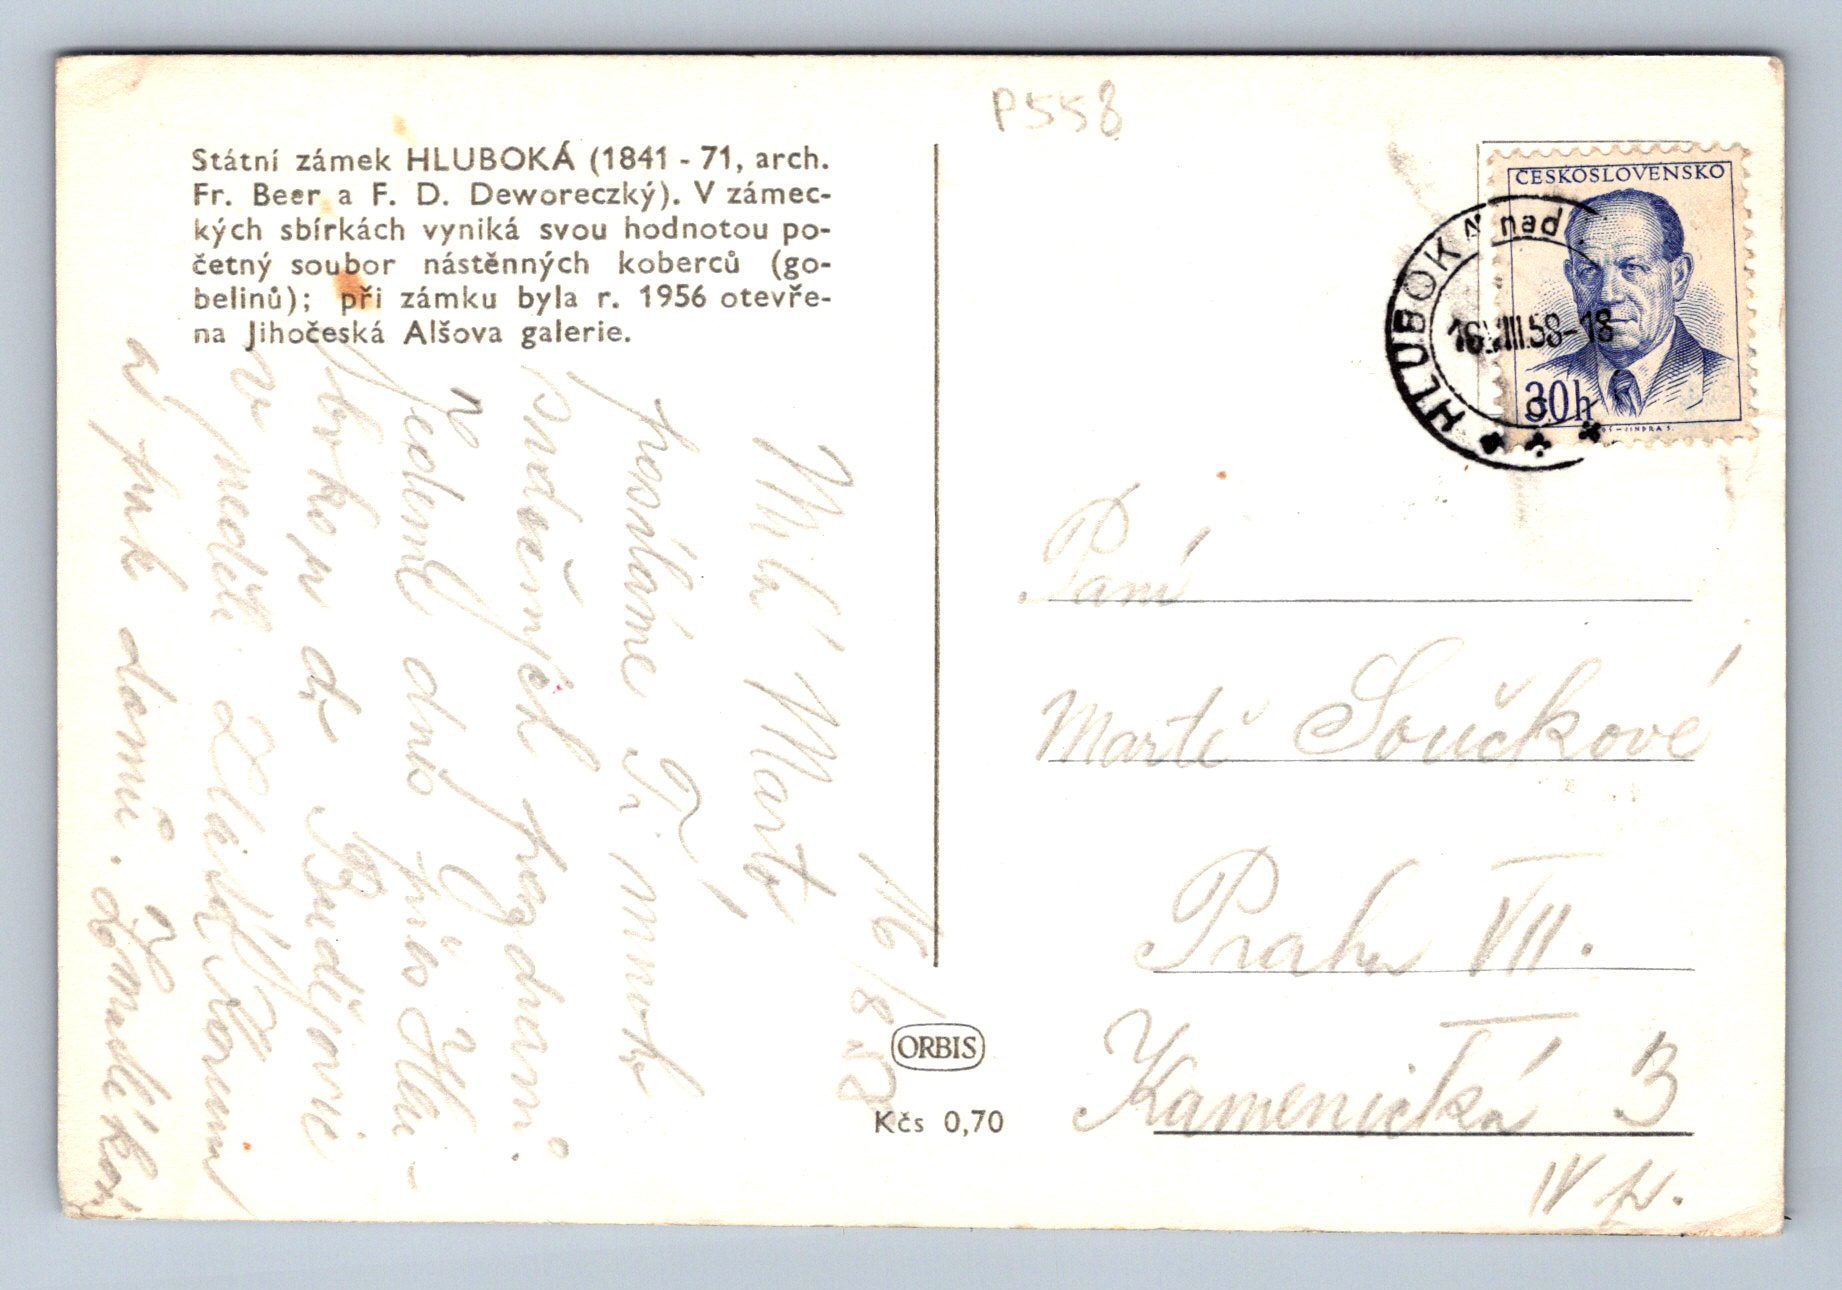 P558
Státní zámek HLUBOKÁ (1841 - 71, arch.
Fr. Beer a F. D. Deworeczký). V zámec-
kých sbírkách vyniká svou hodnotou po-
četný soubor nástěnných koberců (go-
belinů); při zámku byla r. 1956 otevře-
na Jihočeská Alšova galerie.
ČESKOSLOVENSKO
30h
HLUBOKÁ nad
16.VIII.58-18
16/8.58
Milá Marto,
posíláme Ti mnoho
pozdravů
Jedeme dnes přes Hlu-
bokou do Budějovic
v neděli
a pak domů.
Paní
Martě Součkové
Praha VII.
Kamenická 3
IV p.
ORBIS
Kčs 0,70